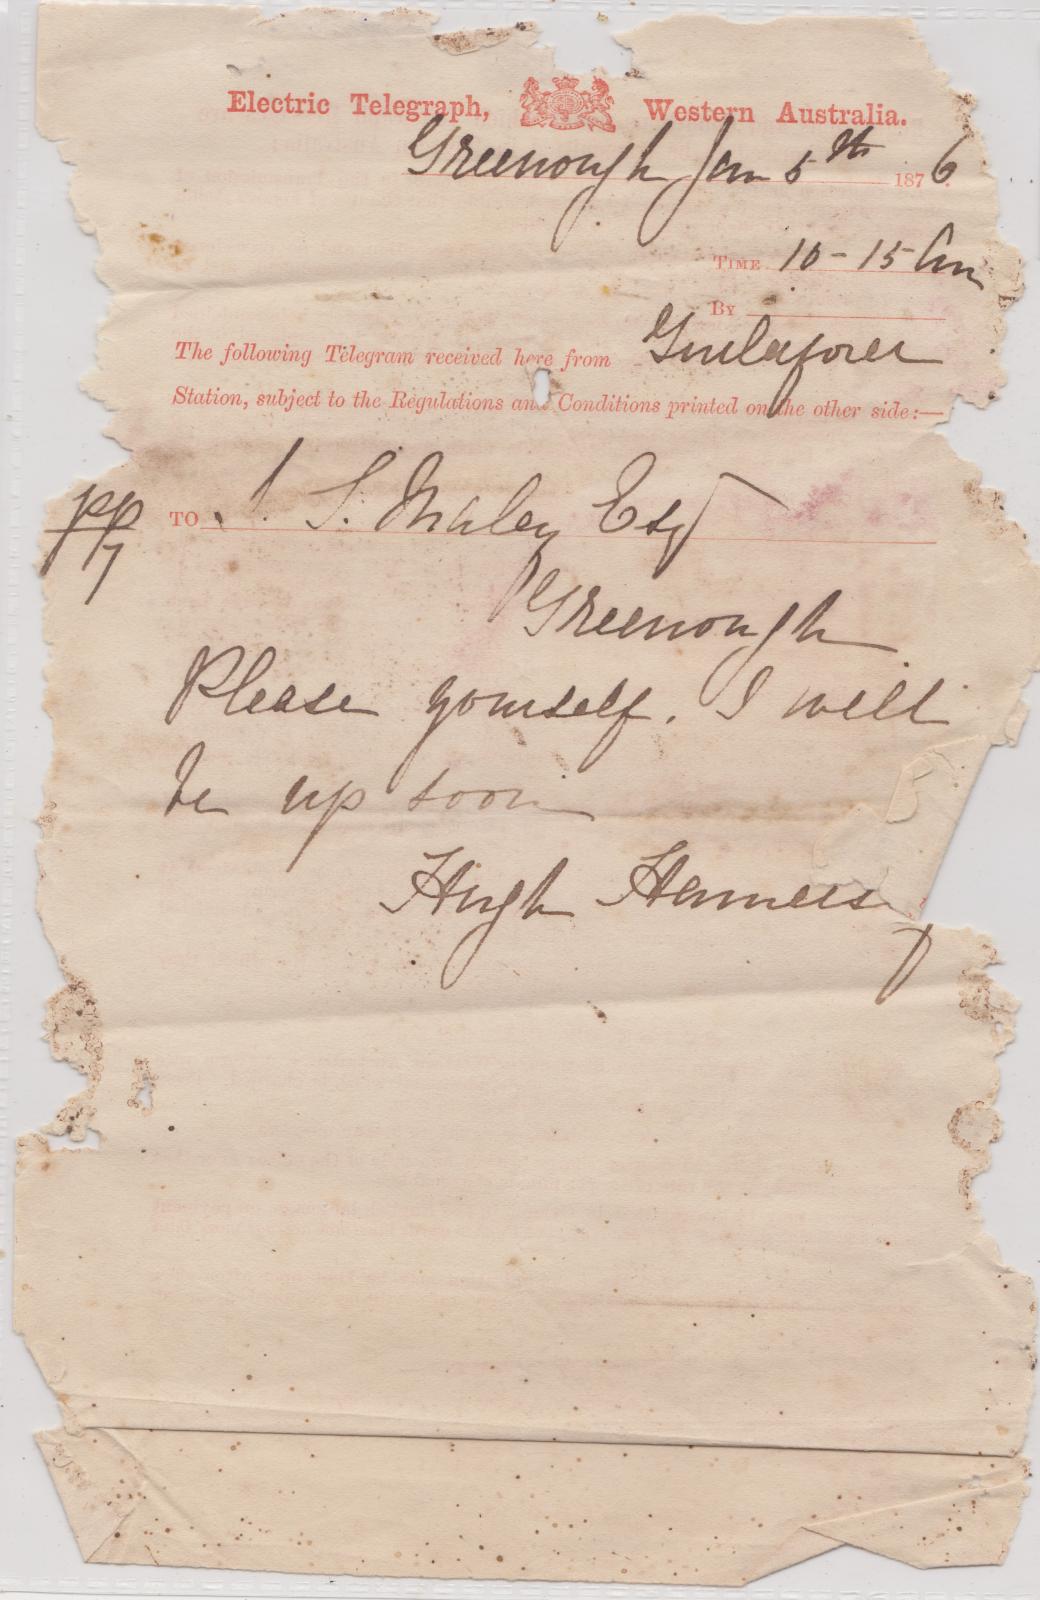 Electric Telegraph, Western Australia.
Greenough Jan 5th 1876.
TIME 10-15 Am
By
The following Telegram received here from
Station, subject to the Regulations and Conditions printed on the other side:—
TO S. Maley Esq
Greenough
Please yourself. I will
be up soon
Hugh